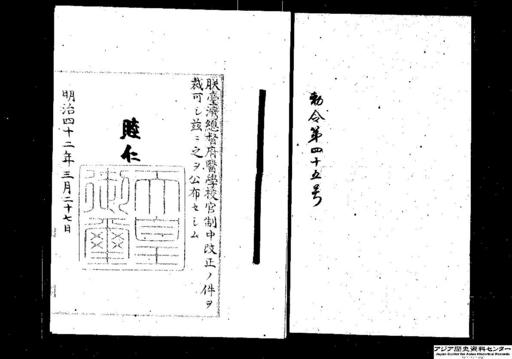 勅令第四十五号
朕臺灣總督府醫學校官制中改正ノ件ヲ
裁可シ茲ニ之ヲ公布セシム
睦仁
天皇
御璽
明治四十二年三月二十七日
アジア歴史資料センター
Japan Center for Asian Historical Records